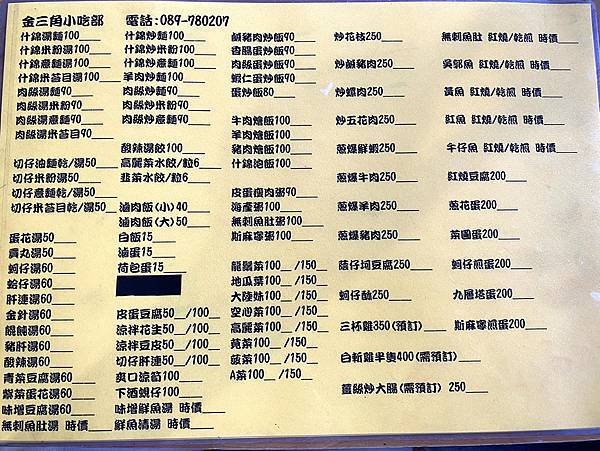 金三角小吃部 電話:089-780207
什錦湯麵100
什錦米粉湯100
什錦意麵湯100
什錦米苔目湯100
肉絲湯麵90
肉絲湯米粉90
肉絲湯意麵90
肉絲湯米苔目90
切仔油麵乾/湯50
切仔米粉湯50
切仔意麵乾/湯50
切仔米苔目乾/湯50
蛋花湯50
貢丸湯50
蚵仔湯60
蛤仔湯60
肝連湯60
金針湯60
餛飩湯60
豬肝湯60
酸辣湯60
青菜豆腐湯60
紫菜蛋花湯60
味增豆腐湯60
無刺魚肚湯 時價
什錦炒麵100
什錦炒米粉100
什錦炒意麵100
羊肉炒麵100
肉絲炒麵90
肉絲炒米粉90
肉絲炒意麵90
酸辣湯餃100
高麗菜水餃/粒6
韭菜水餃/粒6
滷肉飯(小)40
滷肉飯(大)50
白飯15
滷蛋15
荷包蛋15
皮蛋豆腐50__/100
涼拌花生50__/100
涼拌豆皮50__/100
切仔肝連50__/100
爽口涼筍100
下酒蜆仔100
味增鮮魚湯 時價
鮮魚清湯 時價
鹹豬肉炒飯90
香腸蛋炒飯90
肉絲蛋炒飯90
蝦仁蛋炒飯90
蛋炒飯80
牛肉燴飯100
羊肉燴飯100
豬肉燴飯100
什錦泡飯100
皮蛋瘦肉粥90
海產粥100
無刺魚肚粥100
斯麻寧粥100
龍鬚菜100__/150
地瓜葉100__/150
大陸妹100__/150
空心菜100__/150
高麗菜100__/150
莧菜100__/150
菠菜100__/150
A菜100__/150
炒花枝250
炒鹹豬肉250
炒螺肉250
炒五花肉250
蔥爆鮮蝦250
蔥爆牛肉250
蔥爆羊肉250
蔥爆豬肉250
蔭仔蚵豆腐250
蚵仔酥250
三杯雞350(預訂)
白斬雞半隻400(需預訂)
薑絲炒大腸(需預訂) 250
無刺魚肚 紅燒/乾煎 時價
吳郭魚 紅燒/乾煎 時價
黃魚 紅燒/乾煎 時價
紅魚 紅燒/乾煎 時價
午仔魚 紅燒/乾煎 時價
紅燒豆腐200
蔥花蛋200
菜圃蛋200
蚵仔煎蛋200
九層塔蛋200
斯麻寧煎蛋200